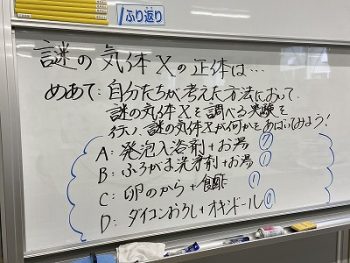 ふり返り
謎の気体Xの正体は…
めあて:自分たちが考えた方法において、
謎の気体Xを調べる実験を
行い、謎の気体Xが何かをあばいてみよう!
A:発泡入浴剤+お湯 ⑦
B:ふろがま洗浄剤+お湯 ①
C:卵のから+食酢 ①
D:ダイコンおろし+オキシドール ⓪